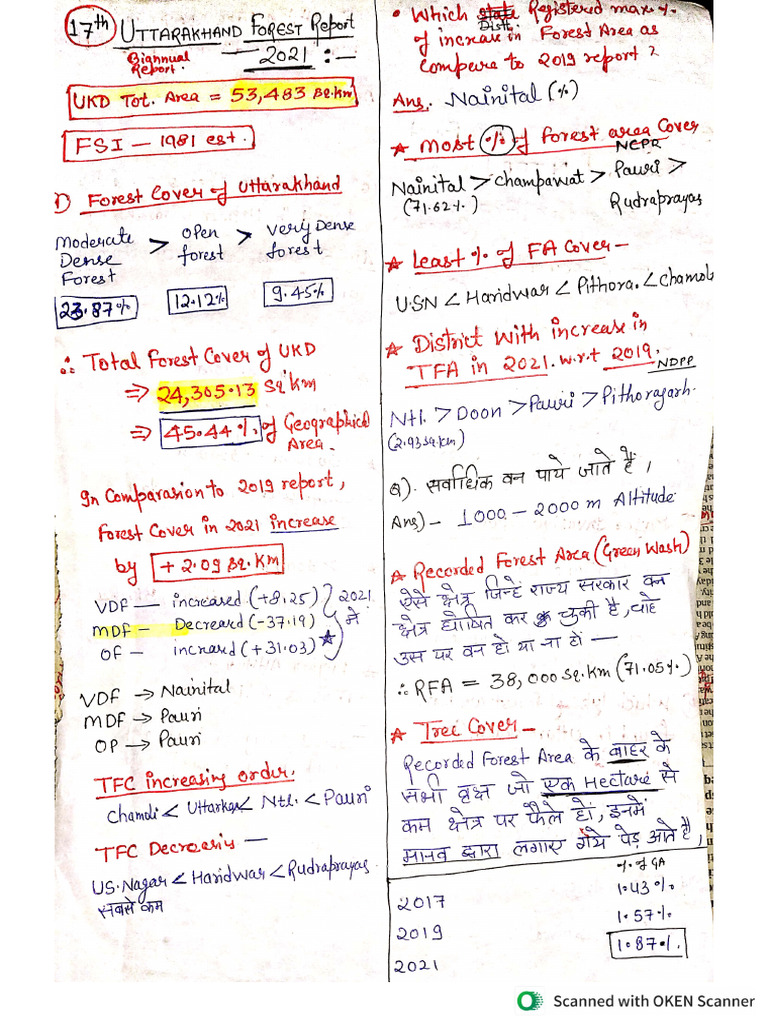 17th UTTARAKHAND FOREST Report
Biannual Report.
2021 :-
UKD Tot. Area = 53,483 sq.km
FSI – 1981 est.
1) Forest Cover of Uttarakhand
Moderate Dense Forest > open forest > very Dense forest
23.87% 12.12% 9.45%
∴ Total Forest Cover of UKD
⇒ 24,305.13 sq.Km
⇒ 45.44% of Geographical Area.
In Comparasion to 2019 report,
Forest Cover in 2021 increase
by + 2.09 sq.Km
VDF — increased (+8.25)
MDF – Decreard (-37.19)
OF – incread (+31.03) ★
2021 में
VDF → Nainital
MDF → Pauri
OP → Pauri
TFC increasing order.
Chamoli < Uttarkas < Ntl. < Pauri
TFC Decreasing —
US.Nagar < Haridwar < Rudraprayag
सबसे कम
• Which Distt. Registered max %
of increase in Forest Area as
compare to 2019 report ?
Ans. Nainital (%)
★ most % of forest area Cover
NCPR
Nainital > champawat > Pauri >
(71.62%) Rudraprayag
★ Least % of FA Cover –
U.SN < Haridwar < Pithora. < Chamoli
★ District with increase in
TFA in 2021. w.r.t 2019.
NDPP
Ntl. > Doon > Pauri > Pithoragarh.
(2.93 sq.km)
Q). सर्वाधिक वन पाये जाते है ?
Ans) – 1000 – 2000 m Altitude
★ Recorded Forest Area (Green Wash)
ऐसे क्षेत्र जिन्हें राज्य सरकार वन
क्षेत्र घोषित कर चुकी है, चाहे
उस पर वन हो या ना हों —
∴ RFA = 38,000 sq.Km (71.05%)
★ Tree Cover –
Recorded Forest Area के बाहर के
सभी वृक्ष जो एक Hectare से
कम क्षेत्र पर फैले हों, इनमें
मानव द्वारा लगाए गये पेड़ आते है,
% of GA
2017 1.43%
2019 1.57%
2021 1.87%.
Scanned with OKEN Scanner